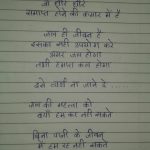 जो धीरे धीरे
समाप्त होने की कगार में है
जल ही जीवन है
इसका सही उपयोग करे
अगर जल होगा
तभी हमारा कल होगा
इसे व्यर्थ ना जाने दे .....
जल की महत्ता को
क्यों हम कर नहीं सकते
बिना पानी के जीवन
में हम रह नहीं सकते